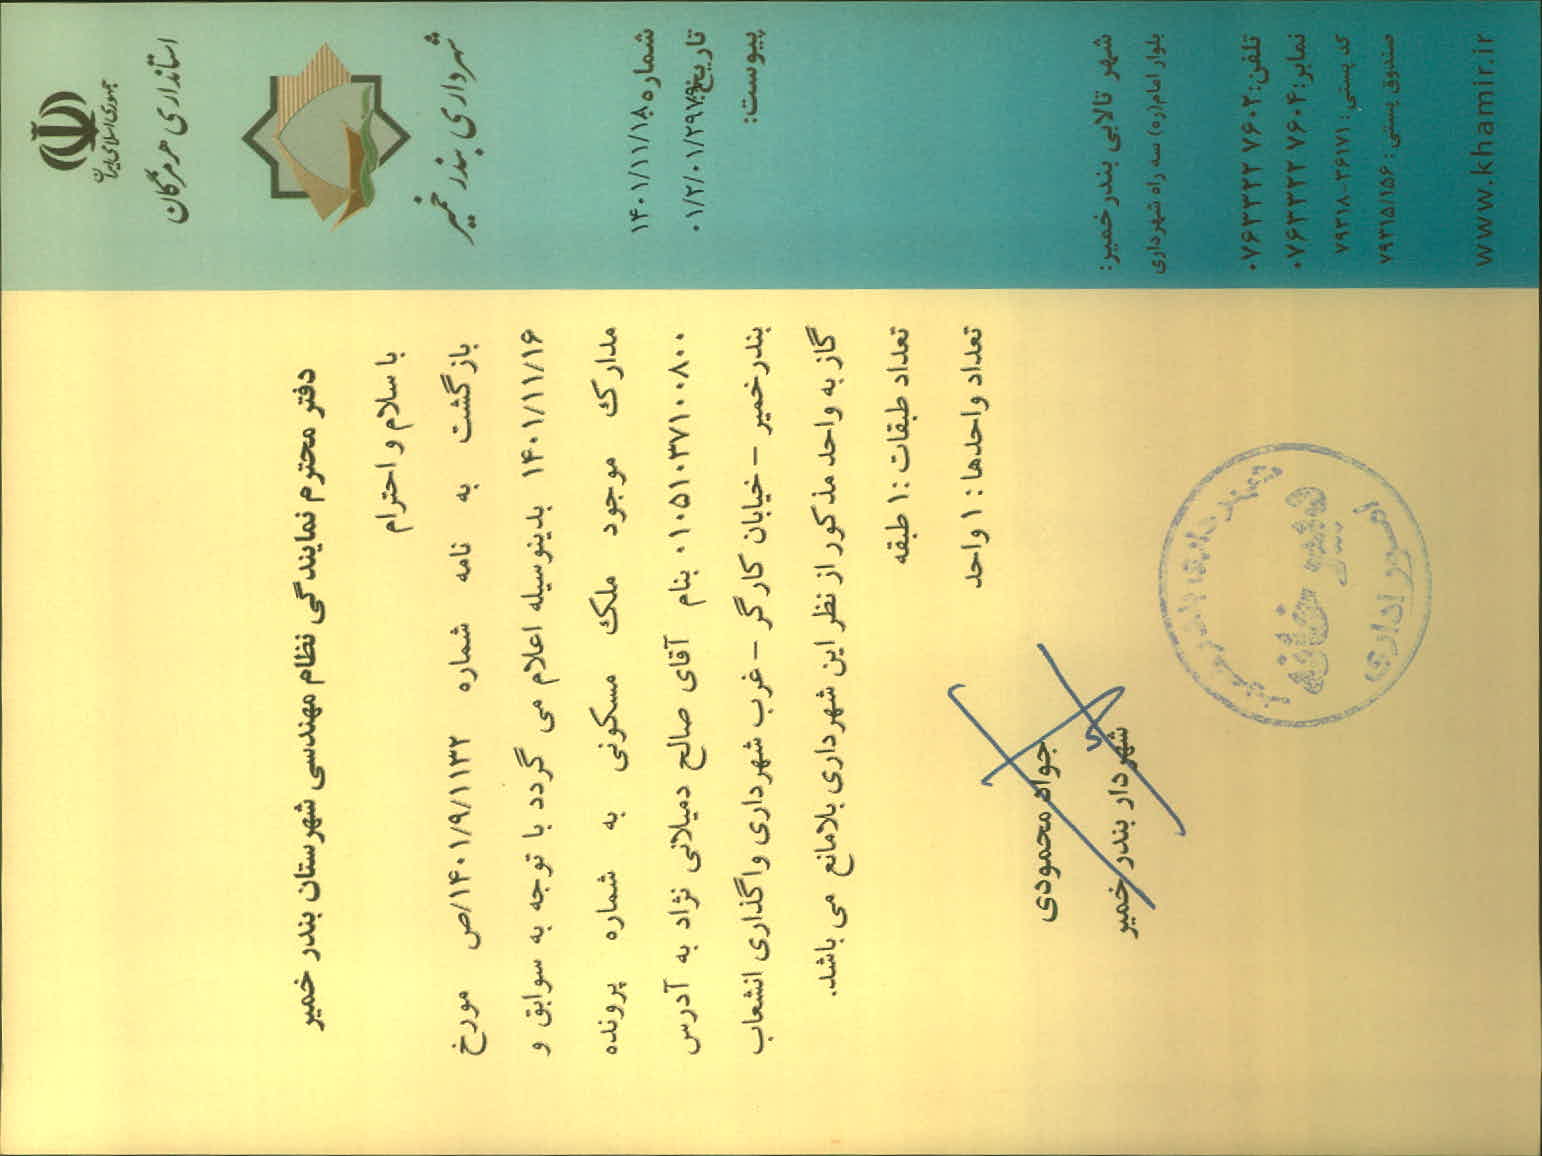 جمهوری اسلامی ایران
استانداری هرمزگان
شهرداری بندر خمیر
شماره:
۱۴۰۱/۱۱/۱۸
تاریخ:
پیوست:
شهر تالابی بندر خمیر:
بلوار امام(ره) سه راه شهرداری
تلفن: ۰۷۶۳۳۲۲۷۶۰۲
نمابر: ۰۷۶۳۳۲۲۷۶۰۴
کد پستی: ۷۹۳۱۸-۳۶۱۷۱
صندوق پستی: ۷۹۳۱۵/۱۵۶
www.khamir.ir
دفتر محترم نمایندگی نظام مهندسی شهرستان بندر خمیر
با سلام و احترام
بازگشت به نامه شماره ۱۴۰۱/۹/۱۱۳۲/ص مورخ
۱۴۰۱/۱۱/۱۶ بدینوسیله اعلام می گردد با توجه به سوابق و
مدارک موجود ملک مسکونی به شماره پرونده
۰۱۰۵۱۰۳۷۱۰۰۸۰۰ بنام آقای صالح دمیلانی نژاد به آدرس
بندرخمیر – خیابان کارگر – غرب شهرداری واگذاری انشعاب
گاز به واحد مذکور از نظر این شهرداری بلامانع می باشد.
تعداد طبقات :۱ طبقه
تعداد واحدها : ۱ واحد
جواد محمودی
شهردار بندر خمیر
دبیرخانه
امور اداری